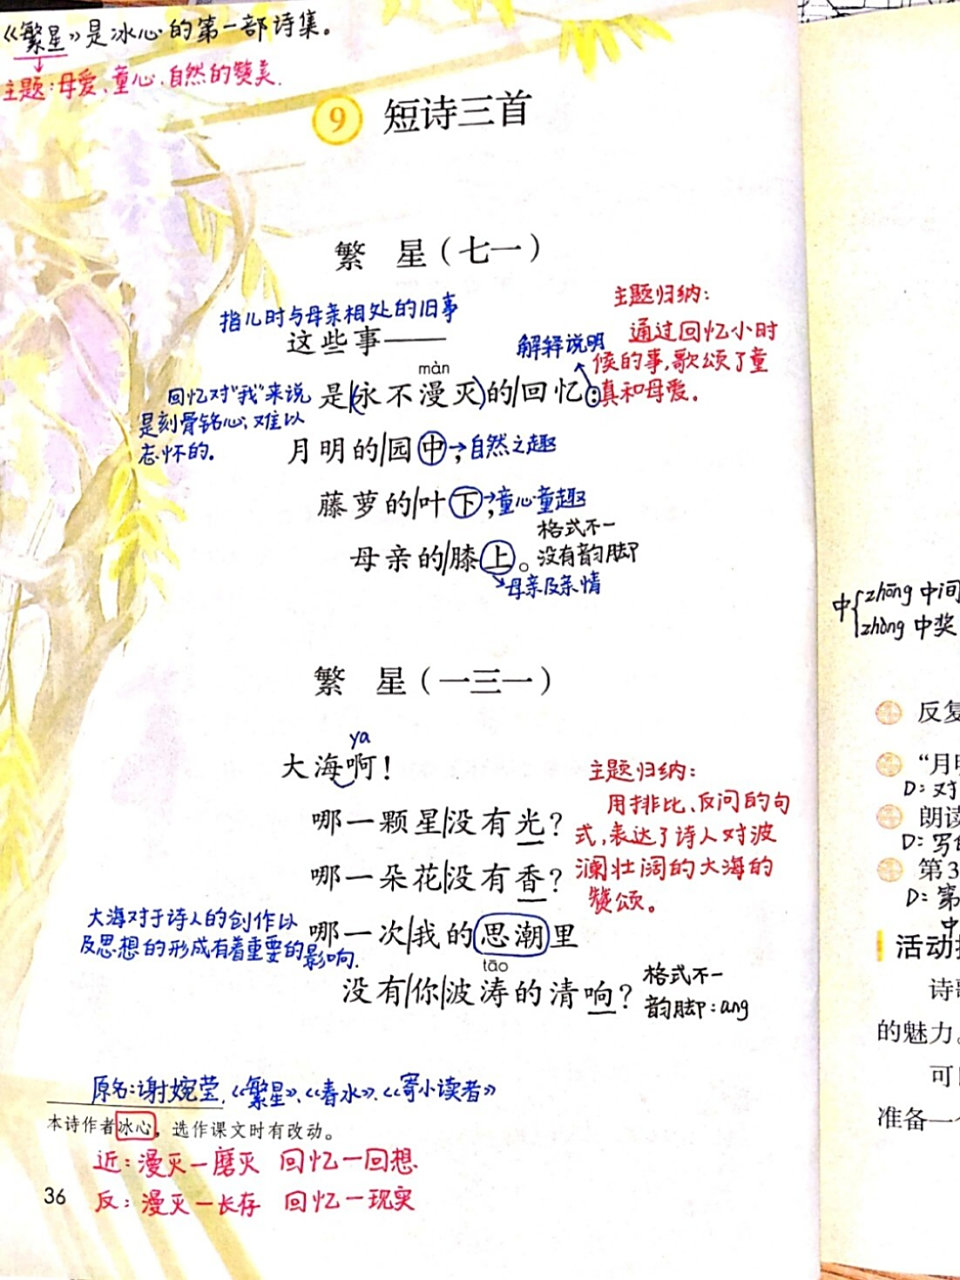 《繁星》是冰心的第一部诗集。
主题:母爱、童心、自然的赞美.
9 短诗三首
繁 星（七一）
指儿时与母亲相处的旧事
这些事——
màn
是(永不漫灭)的/回忆:
解释说明
主题归纳:
通过回忆小时
候的事,歌颂了童
真和母爱。
回忆对“我”来说
是刻骨铭心,难以
忘怀的.
月明的/园中，→自然之趣
藤萝的/叶下，→童心童趣
母亲的/膝上。
→母亲及亲情
格式不一
没有韵脚
繁 星（一三一）
ya
大海啊！
哪一颗星/没有光？
哪一朵花/没有香？
哪一次/我的思潮里
tāo
没有/你/波涛的清响？
主题归纳:
用排比、反问的句
式,表达了诗人对波
澜壮阔的大海的
赞颂。
大海对于诗人的创作以
及思想的形成有着重要的
影响.
格式不一
韵脚:ang
原名:谢婉莹.《繁星》、《春水》、《寄小读者》
本诗作者冰心，选作课文时有改动。
近:漫灭—磨灭 回忆—回想
反:漫灭—长存 回忆—现实
36
中{zhōng 中间
zhòng 中奖
反复
“月明
D:对
朗读
D:写
第3
D:第
中
活动
诗歌
的魅力。
可
准备一个